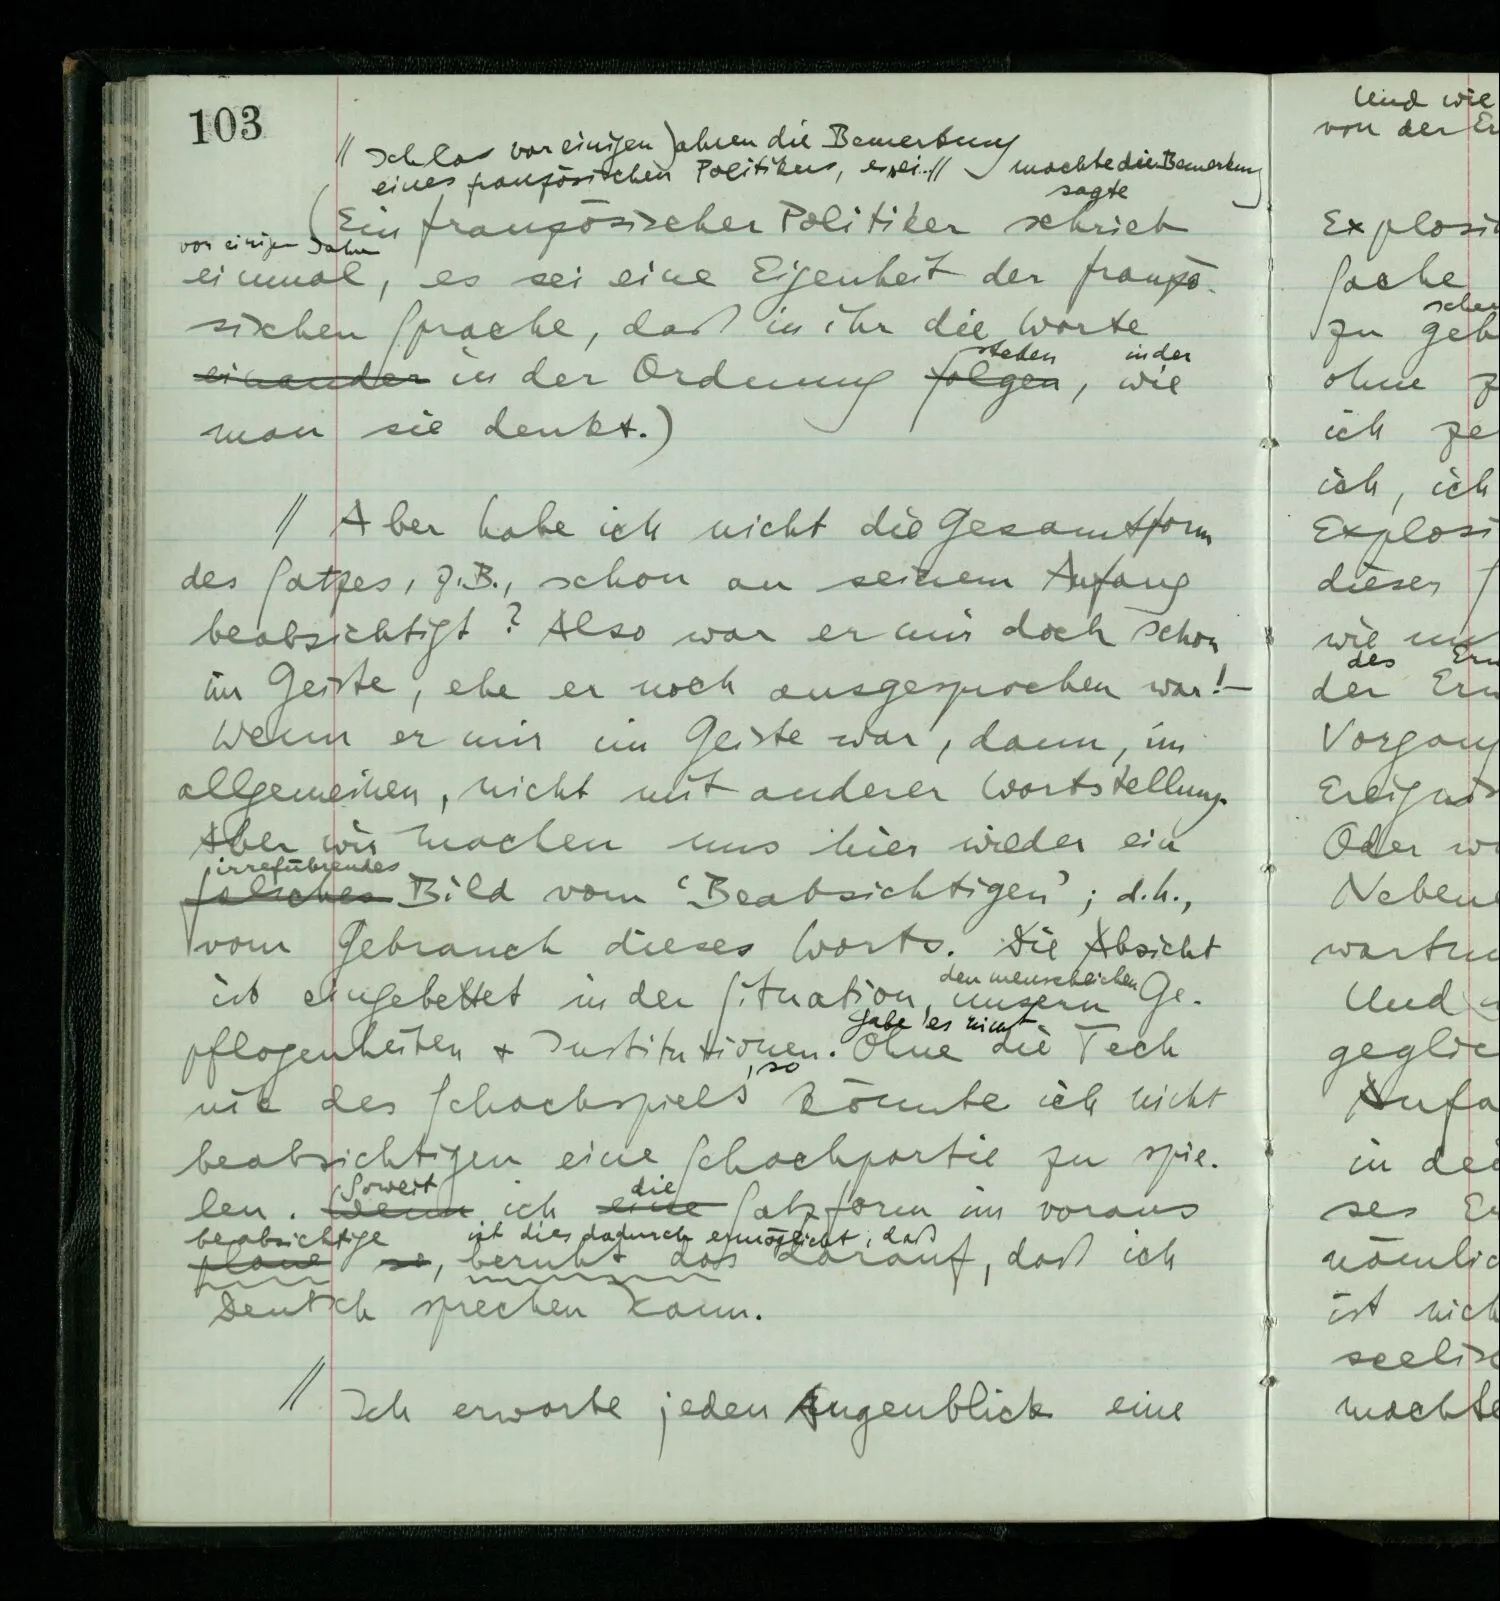 103
// Ich las vor einigen Jahren die Bemerkung
eines französischen Politikers, es sei // machte die Bemerkung
sagte
(Ein französischer Politiker schrieb
vor einigen Jahren
einmal, es sei eine Eigenheit der franzö-
sischen Sprache, daß in ihr die Worte
stehen in der
einander in der Ordnung folgen, wie
man sie denkt.)
// Aber habe ich nicht die Gesamtform
des Satzes, z.B., schon an seinem Anfang
beabsichtigt? Also war er mir doch schon
im Geiste, ehe er noch ausgesprochen war! –
Wenn er mir im Geiste war, dann, im
allgemeinen, nicht mit anderer Wortstellung.
Aber wir machen uns hier wieder ein
irreführendes
falsches Bild vom ‘Beabsichtigen’; d.h.,
vom Gebrauch dieses Worts. Die Absicht
den menschlichen
ist eingebettet in der Situation, unsern Ge-
Gäbe es nicht
pflogenheiten + Institutionen. Ohne die Tech
, so
nik des Schachspiels könnte ich nicht
beabsichtigen eine Schachpartie zu spie-
Soweit die
len. Wenn ich eine Satzform im voraus
beabsichtige ist dies dadurch ermöglicht, daß
plane so, beruht das darauf, daß ich
Deutsch sprechen kann.
// Ich erwarte jeden Augenblick eine
Und wie
von der
Explosi
Sache
zu geb
ohne z
ich
ich, ich
Explosi
dieser
wie
des
der
Vorgang
Ereignis
Oder
Nebene
wartun
Und
geglic
Anfa
in
ses
nämlic
ist nich
seelisc
machte